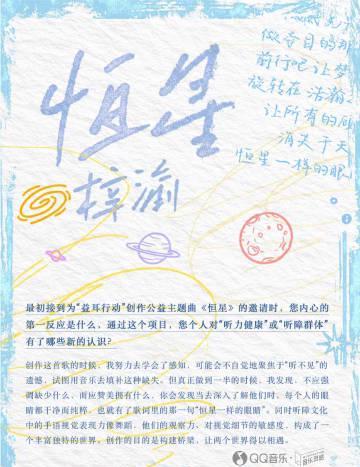 做夺目的那
前行吧 让梦
旋转在 浩瀚
让所有的
消失于天
恒星一样的眼
恒星
梓渝
最初接到为“益耳行动”创作公益主题曲《恒星》的邀请时，您内心的
第一反应是什么，通过这个项目，您个人对“听力健康”或“听障群体”
有了哪些新的认识?
创作这首歌的时候，我努力去学会了感知，可能会不自觉地聚焦于“听不见”的
遗憾，试图用音乐去填补这种缺失。但真正做到一半的时候，我发现，不应强
调缺少什么，而应赞美拥有什么。你会发现当去深入了解他们时，每个人的眼
睛都干净而纯粹，也就有了歌词里的那一句“恒星一样的眼睛”。同时听障文化
中的手语视觉表现力像舞蹈，他们的观察力、对视觉细节的敏感度，构成了一
个丰富独特的世界。创作的目的是构建桥梁，让两个世界得以相遇。
QQ音乐·音乐开麦